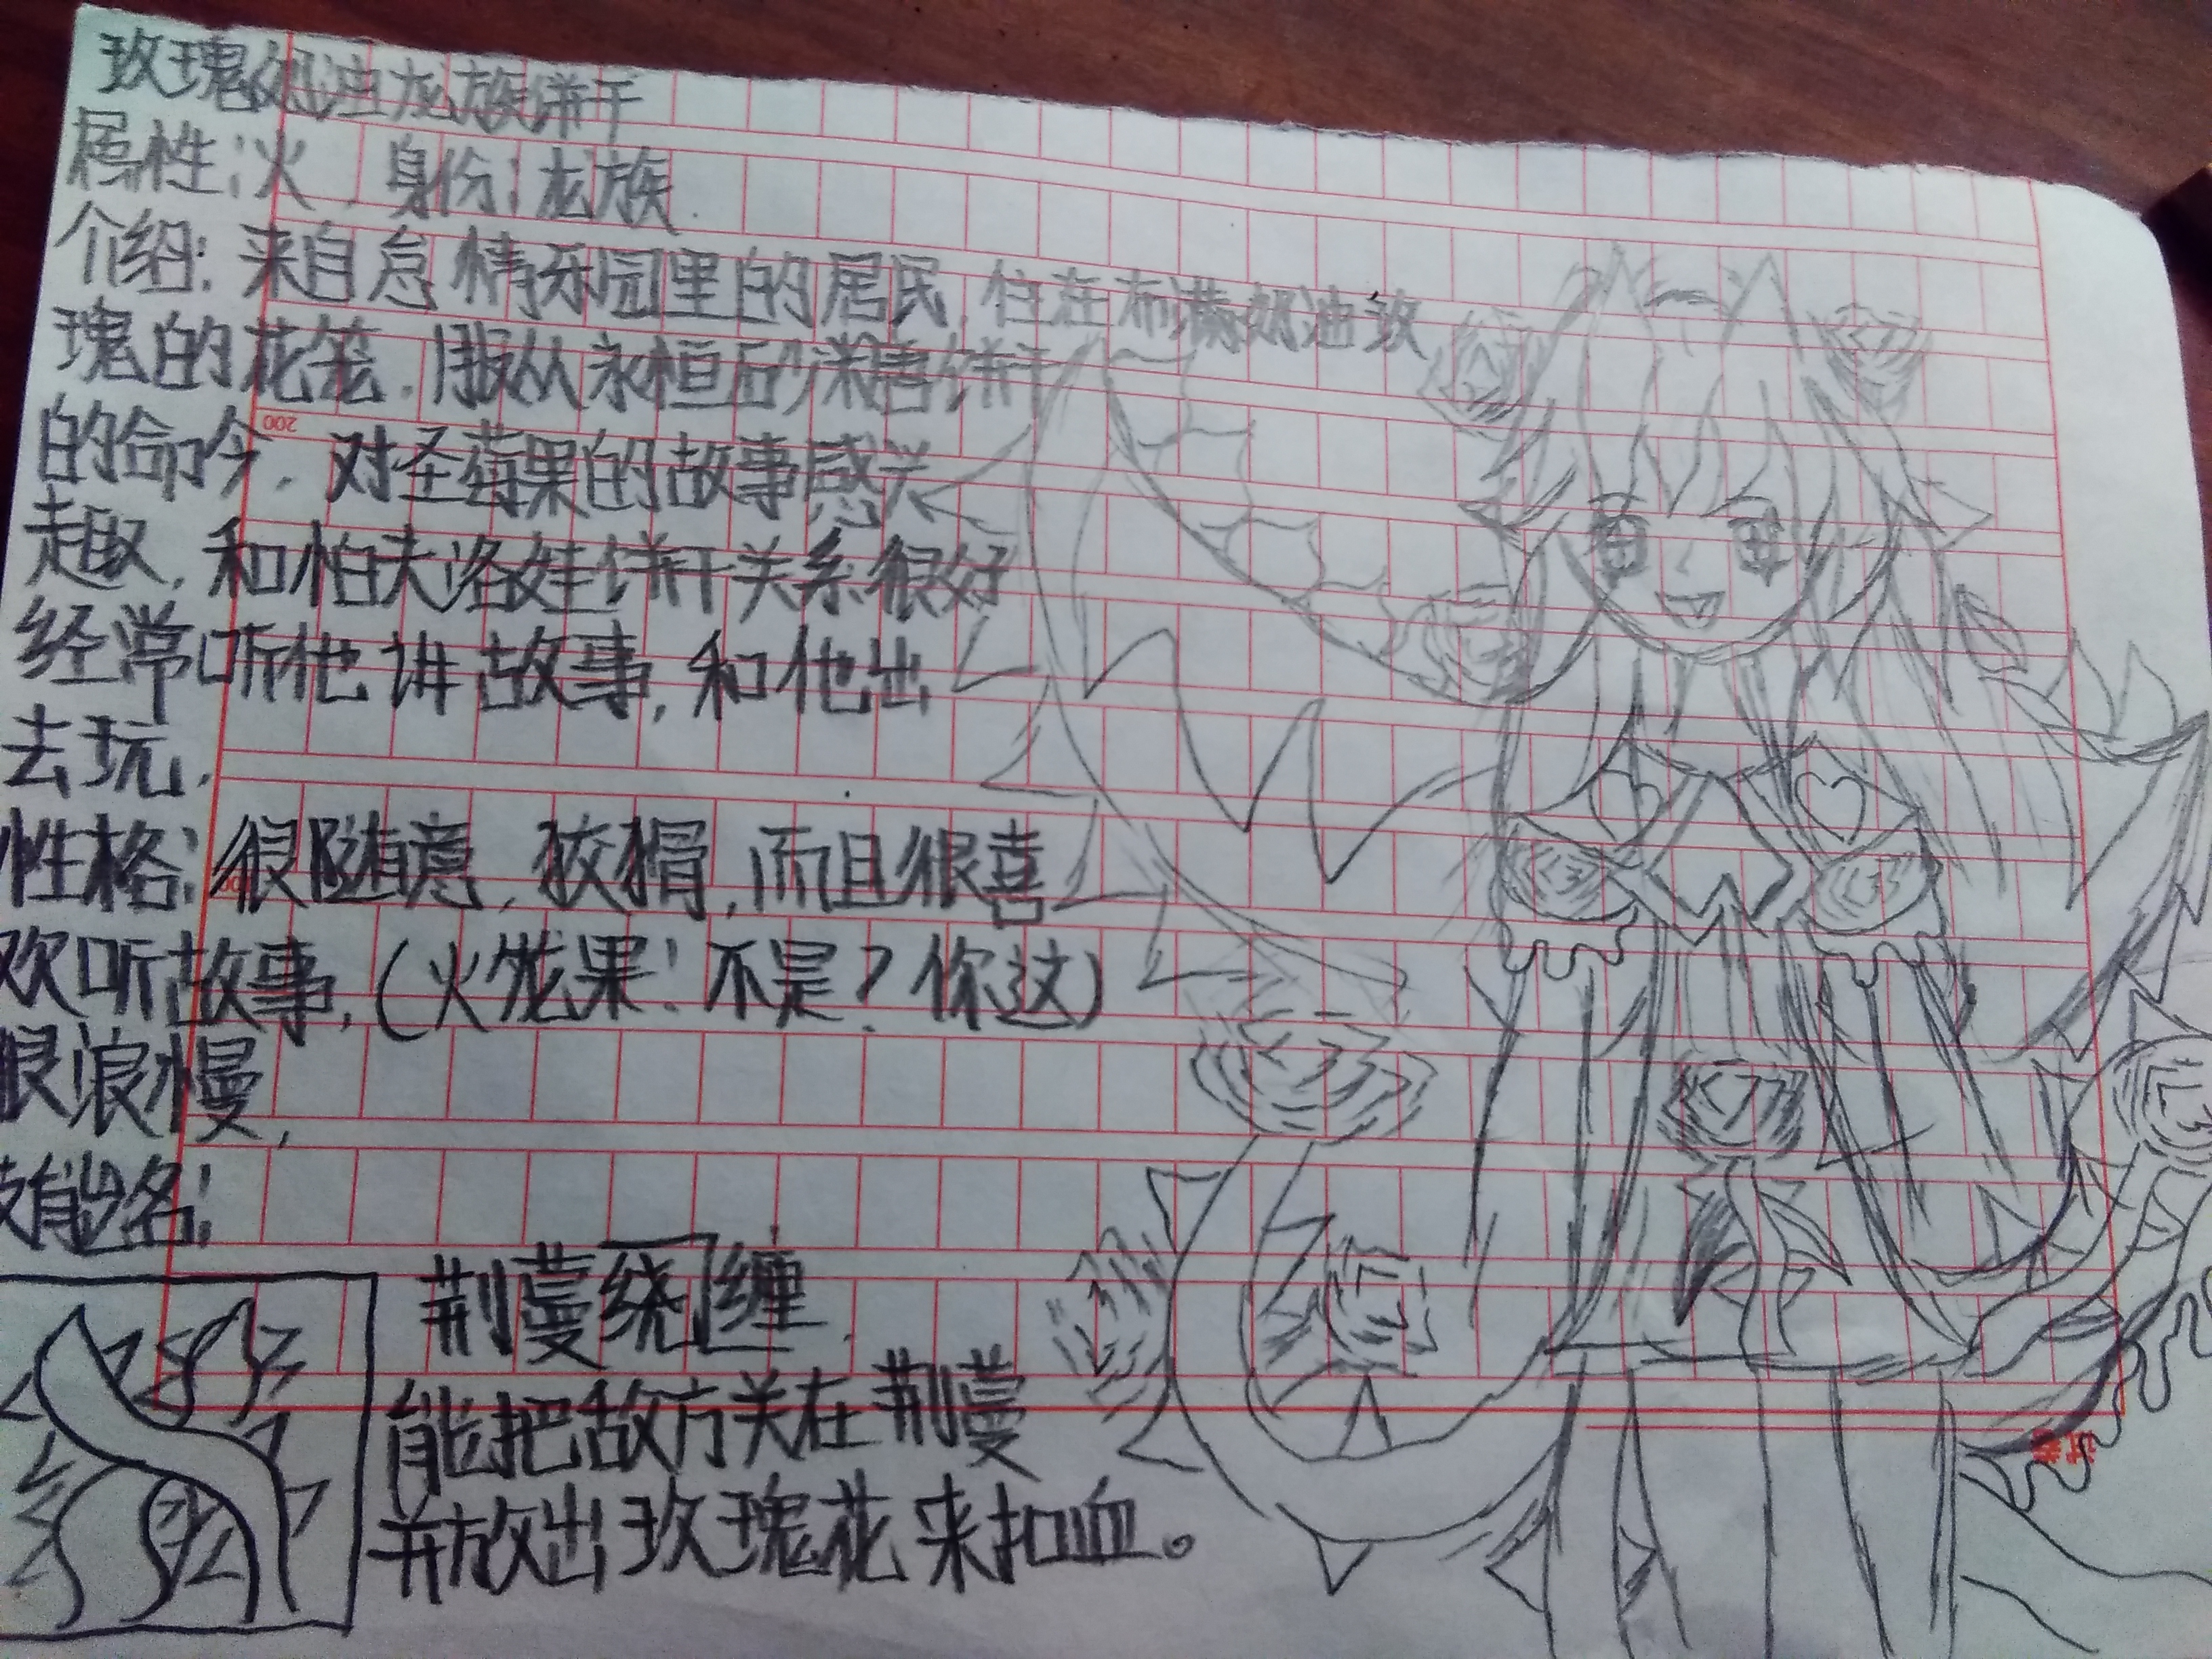 玫瑰奶油龙族饼干
属性:火 身份:龙族
介绍:来自怠情乐园里的居民,住在布满奶油玫
瑰的花笼,服从永恒砂糖饼干
的命令,对圣莓果的故事感兴
趣,和怕夫洛娃饼干关系很好
经常听他讲故事,和他出
去玩,
性格:很随意,狡猾,而且很喜
欢听故事,(火龙果:不是?你这)
很浪慢,
技能名:
荆蔓绕缠
能把敌方关在荆蔓
并放出玫瑰花来扣血。
200